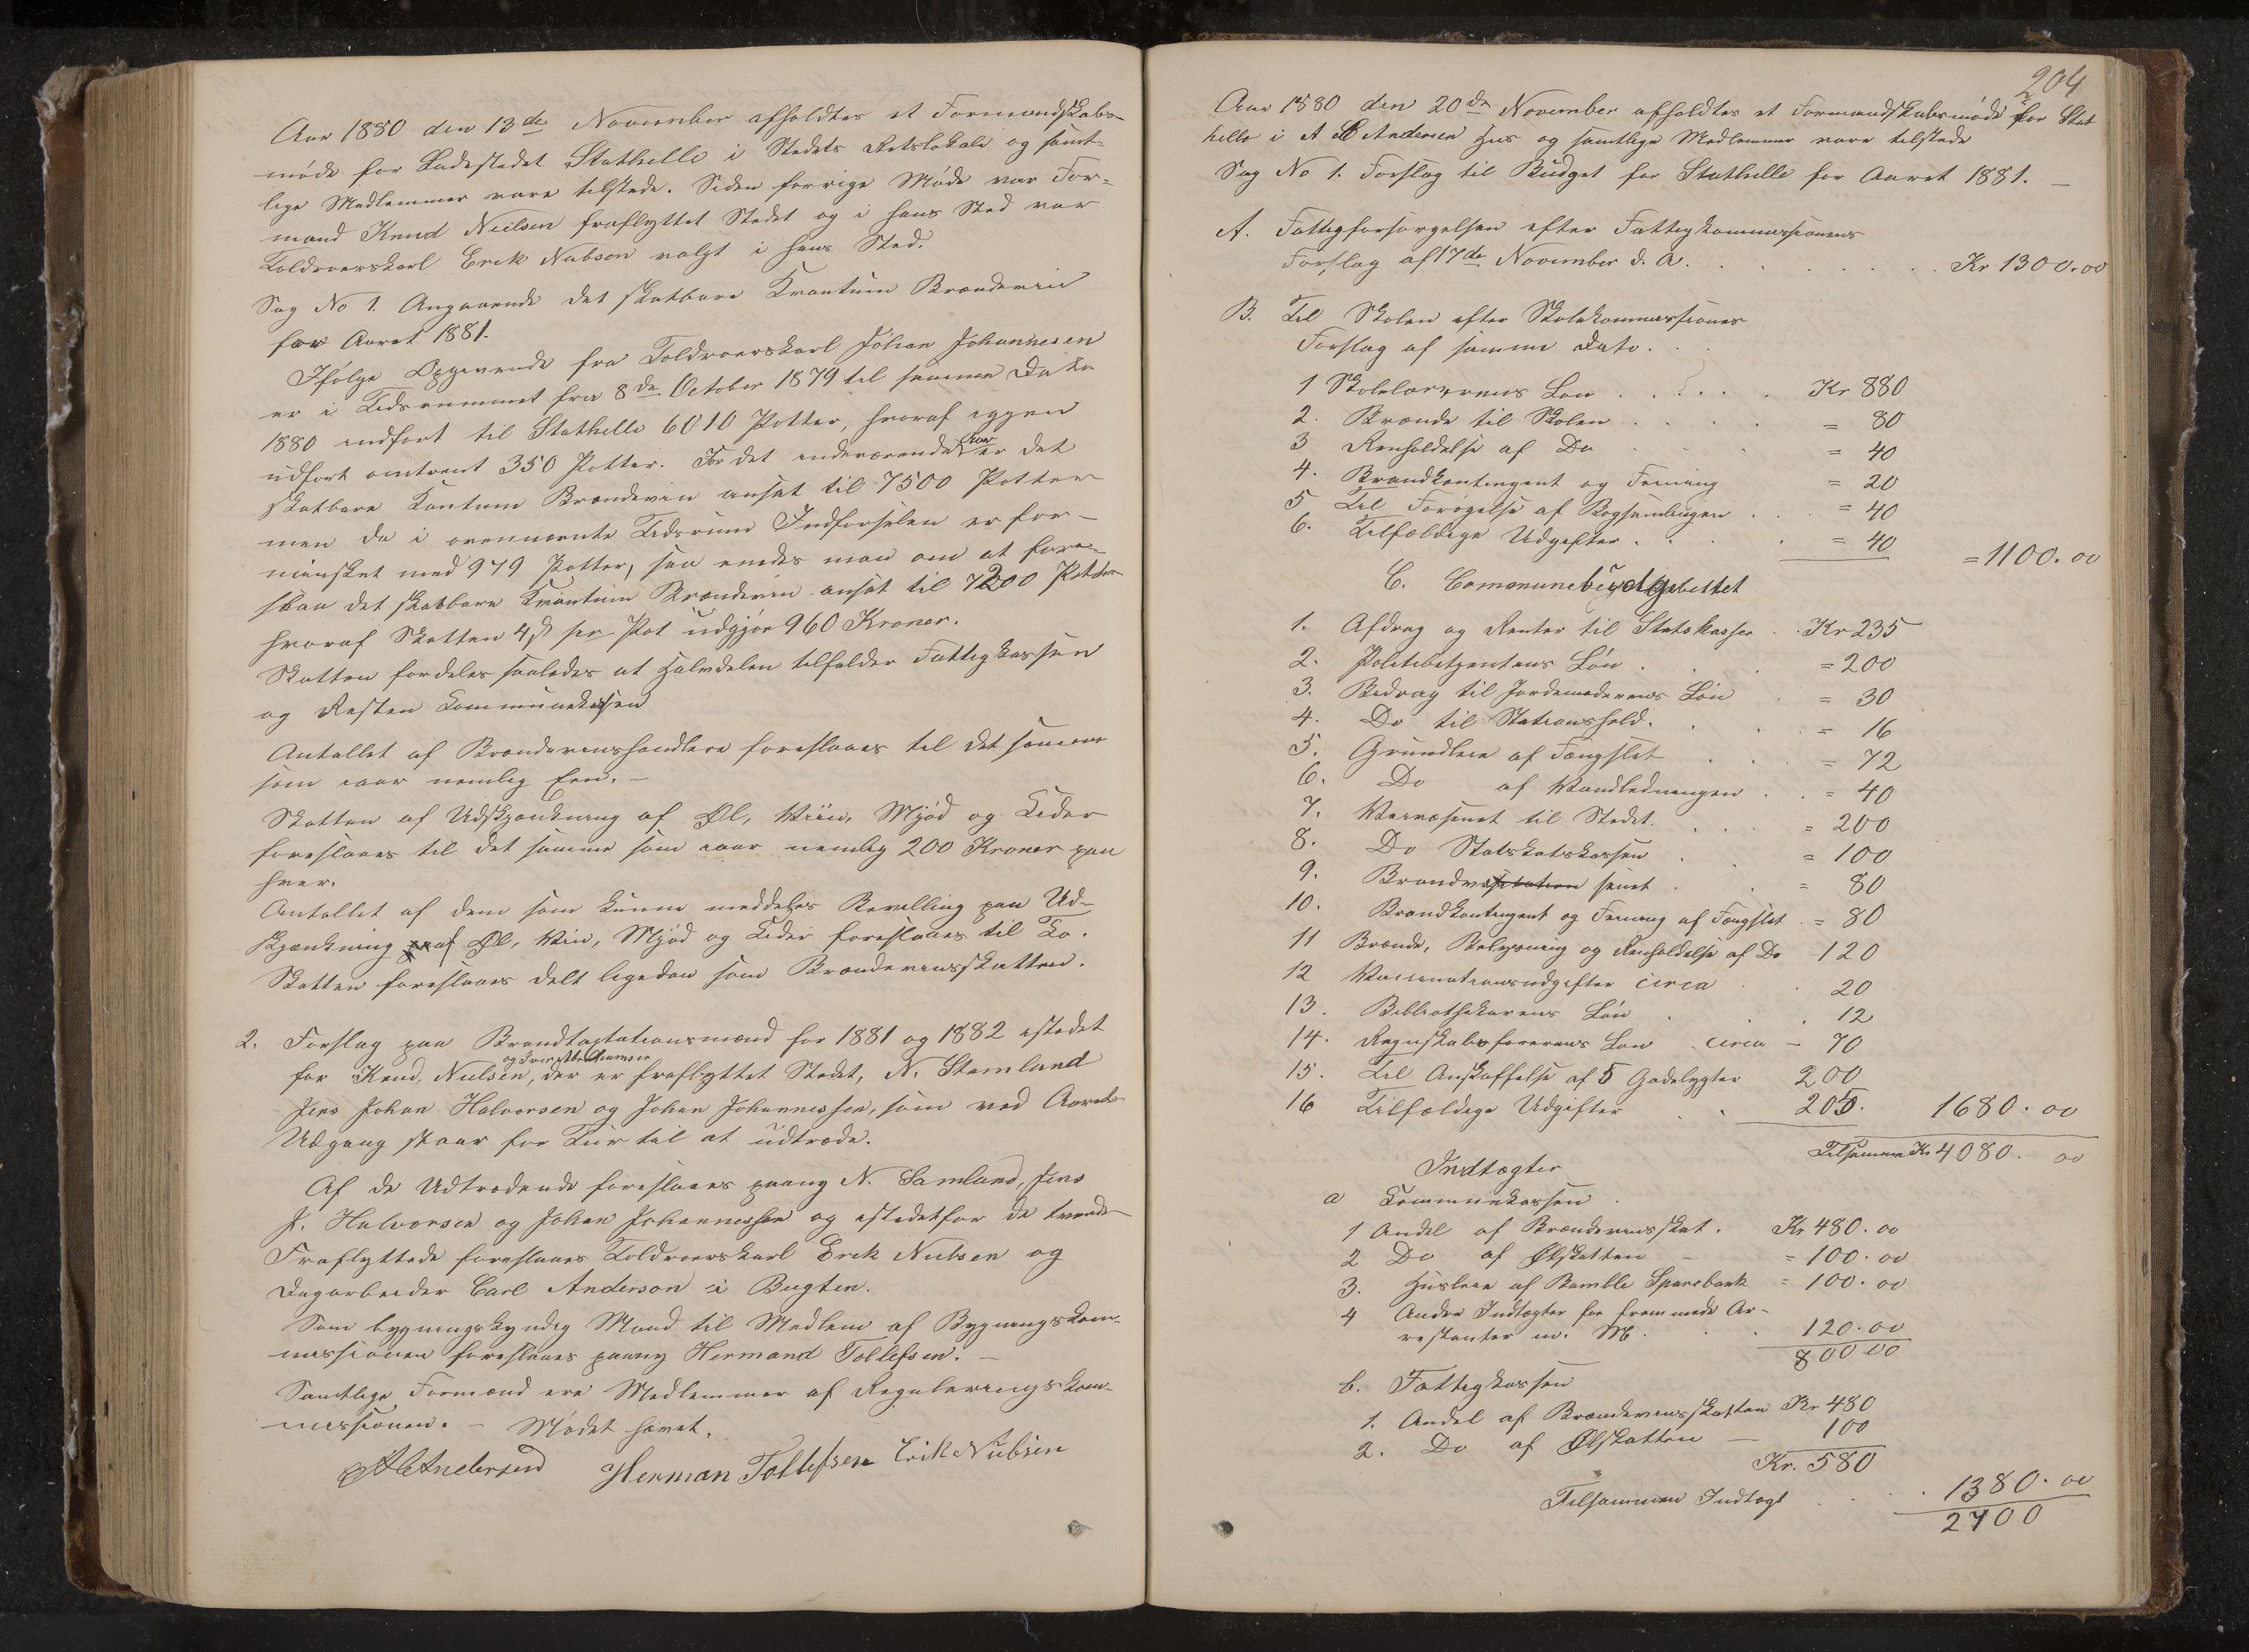 Aar 1880 den 13de November afholdtes et Formandskabs-
møde for Ladestedet Stathelle i Stedets Retslokale og samt-
lige Medlemmer vare tilstede. Siden forrige Møde var For-
mand Knud Neilsen fraflyttet Stedet og i hans Sted var
Toldroerskarl Erik Nubsen valgt i hans Sted.
Sag No 1. Angaaende det skatbare Kvantum Brændeviin
for Aaret 1881.
Ifølge Opgivende fra Toldroerskarl Johan Johannesen
er i Tidsrummet fra 8de October 1879 til samme Dato
1880 indført til Stathelle 6010 Potter, hvoraf igjen
udført omtrent 350 Potter. For det indeværende Aar er det
skatbare Kantum Brændevin ansat til 7500 Potter
men da i ovennævnte Tidsrum Indførselen er for-
mindsket med 979 Potter, saa enedes man om at fore-
slaa det skatbare Kvantum Brændevin ansat til 7200 Potter
hvoraf Skatten 4 ß pr Pot udgjør 960 Kroner.
Skatten fordeles saaledes at Halvdelen tilfalder Fattigkassen
og Resten Kommunekassen
Antallet af Brændevinshandlere foreslaaes til det samme
som iaar nemlig Een. –
Skatten af Udskjænkning af Øl, Viin, Mjød og Cider
foreslaaes til det samme som iaar nemlig 200 Kroner paa
hver.
Antallet af dem som kunne meddeles Bevilling paa Ud-
skjænkning af Øl, Vin, Mjød og Cider foreslaaes til To.
Skatten foreslaaes delt ligedan som Brændevinsskatten.
2. Forslag paa Brandtaxtationsmænd for 1881 og 1882 istedet
for Knud Nielsen, der er fraflyttet Stedet, N. Stamland
Jens Johan Halvorsen og Johan Johannessen, som ved Aarets
Udgang staar for Tur til at udtræde.
Af de Udtrædende foreslaaes paany N. Samland, Jens
J. Halvorsen og Johan Johannessen og istedetfor de tvende
Fraflyttede foreslaaes Toldroerskarl Erik Nubsen og
Dagarbeider Carl Anderson i Bugten.
Som bygningskyndig Mand til Medlem af Bygningskom-
missionen foreslaaes paany Hermand Tollefsen. –
Samtlige Formænd ere Medlemmer af Reguleringskom-
missionen. – Mødet hævet.
A C Andersen Herman Tollefsen Erik Nubsen
204
Aar 1880 den 20de November afholdtes et Formandskabsmøde for Stat
helle i A C Andersen Hus og samtlige Medlemmer vare tilstede
Sag No 1. Forslag til Budget for Stathelle for Aaret 1881. –
A. Fattigforsørgelsen efter Fattigkommissionens
Forslag af 17de November d. A. . . . . . . Kr 1300.00
B. Til Skolen efter Skolekommissiones
Forslag af samme Dato.
1 Skolelærerens Løn . . . . . Kr 880
2. Brænde til Skolen . . . . = 80
3 Renholdelse af Do . . . = 40
4. Brandkontingent og Feining = 20
5 Til Forøgelse af Bogsamlingen . . = 40
6. Tilfældige Udgifter . . . . = 40 = 1100.00
C. Communebudgettet
1. Afdrag og Renter til Statskassen . . Kr 235
2. Politibetjentens Løn . . . = 200
3. Bidrag til Jordemoderens Løn . = 30
4. Do til Stationshold. . . = 16
5. Grundleie af Fængslet . . . = 72
6. Do af Vandledningen . . = 40
7. Veivæsenet til Stedet. . . . = 200
8. Do Statskatskassen . . . = 100
9. Brandvæsenet . . = 80
10. Brandkontingent og Feining af Fængslet . = 80
11 Brænde, Belysning og Renholdelse af Do - 120
12 Vaccinationsudgifter circa . 20
13. Bibliothekarens Løn . . 12
14. Regnskabsførerens Løn circa – 70
15. Til Anskaffelse af 5 Gadelygter 200
16 Tilfældige Udgifter . . 205. 1680.00
Tilsammen Kr 4080. 00
Indtægter
a Kommunekassen .
1 Andel af Brændevinsskat. Kr 480.00
2 Do af Ølskatten – = 100.00
3. Husleie af Bamble Sparebank = 100.00
4 Andre Indtægter for fremmede Ar-
restanter m. M. . . 120.00
800 00
b. Fattigkassen
1. Andel af Brændevinsskatten Kr 480
2. Do af Ølskatten – 100
Kr. 580
Tilsammen Indtægt . . . 1380.00
2700